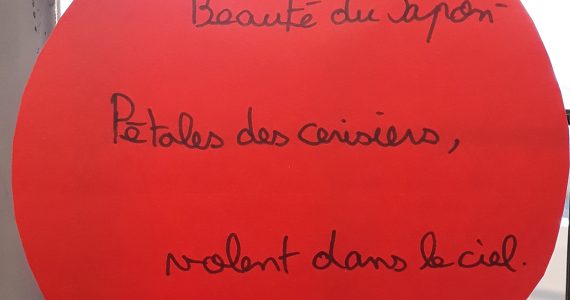 Beauté du Japon
Pétales des cerisiers,
volent dans le ciel.